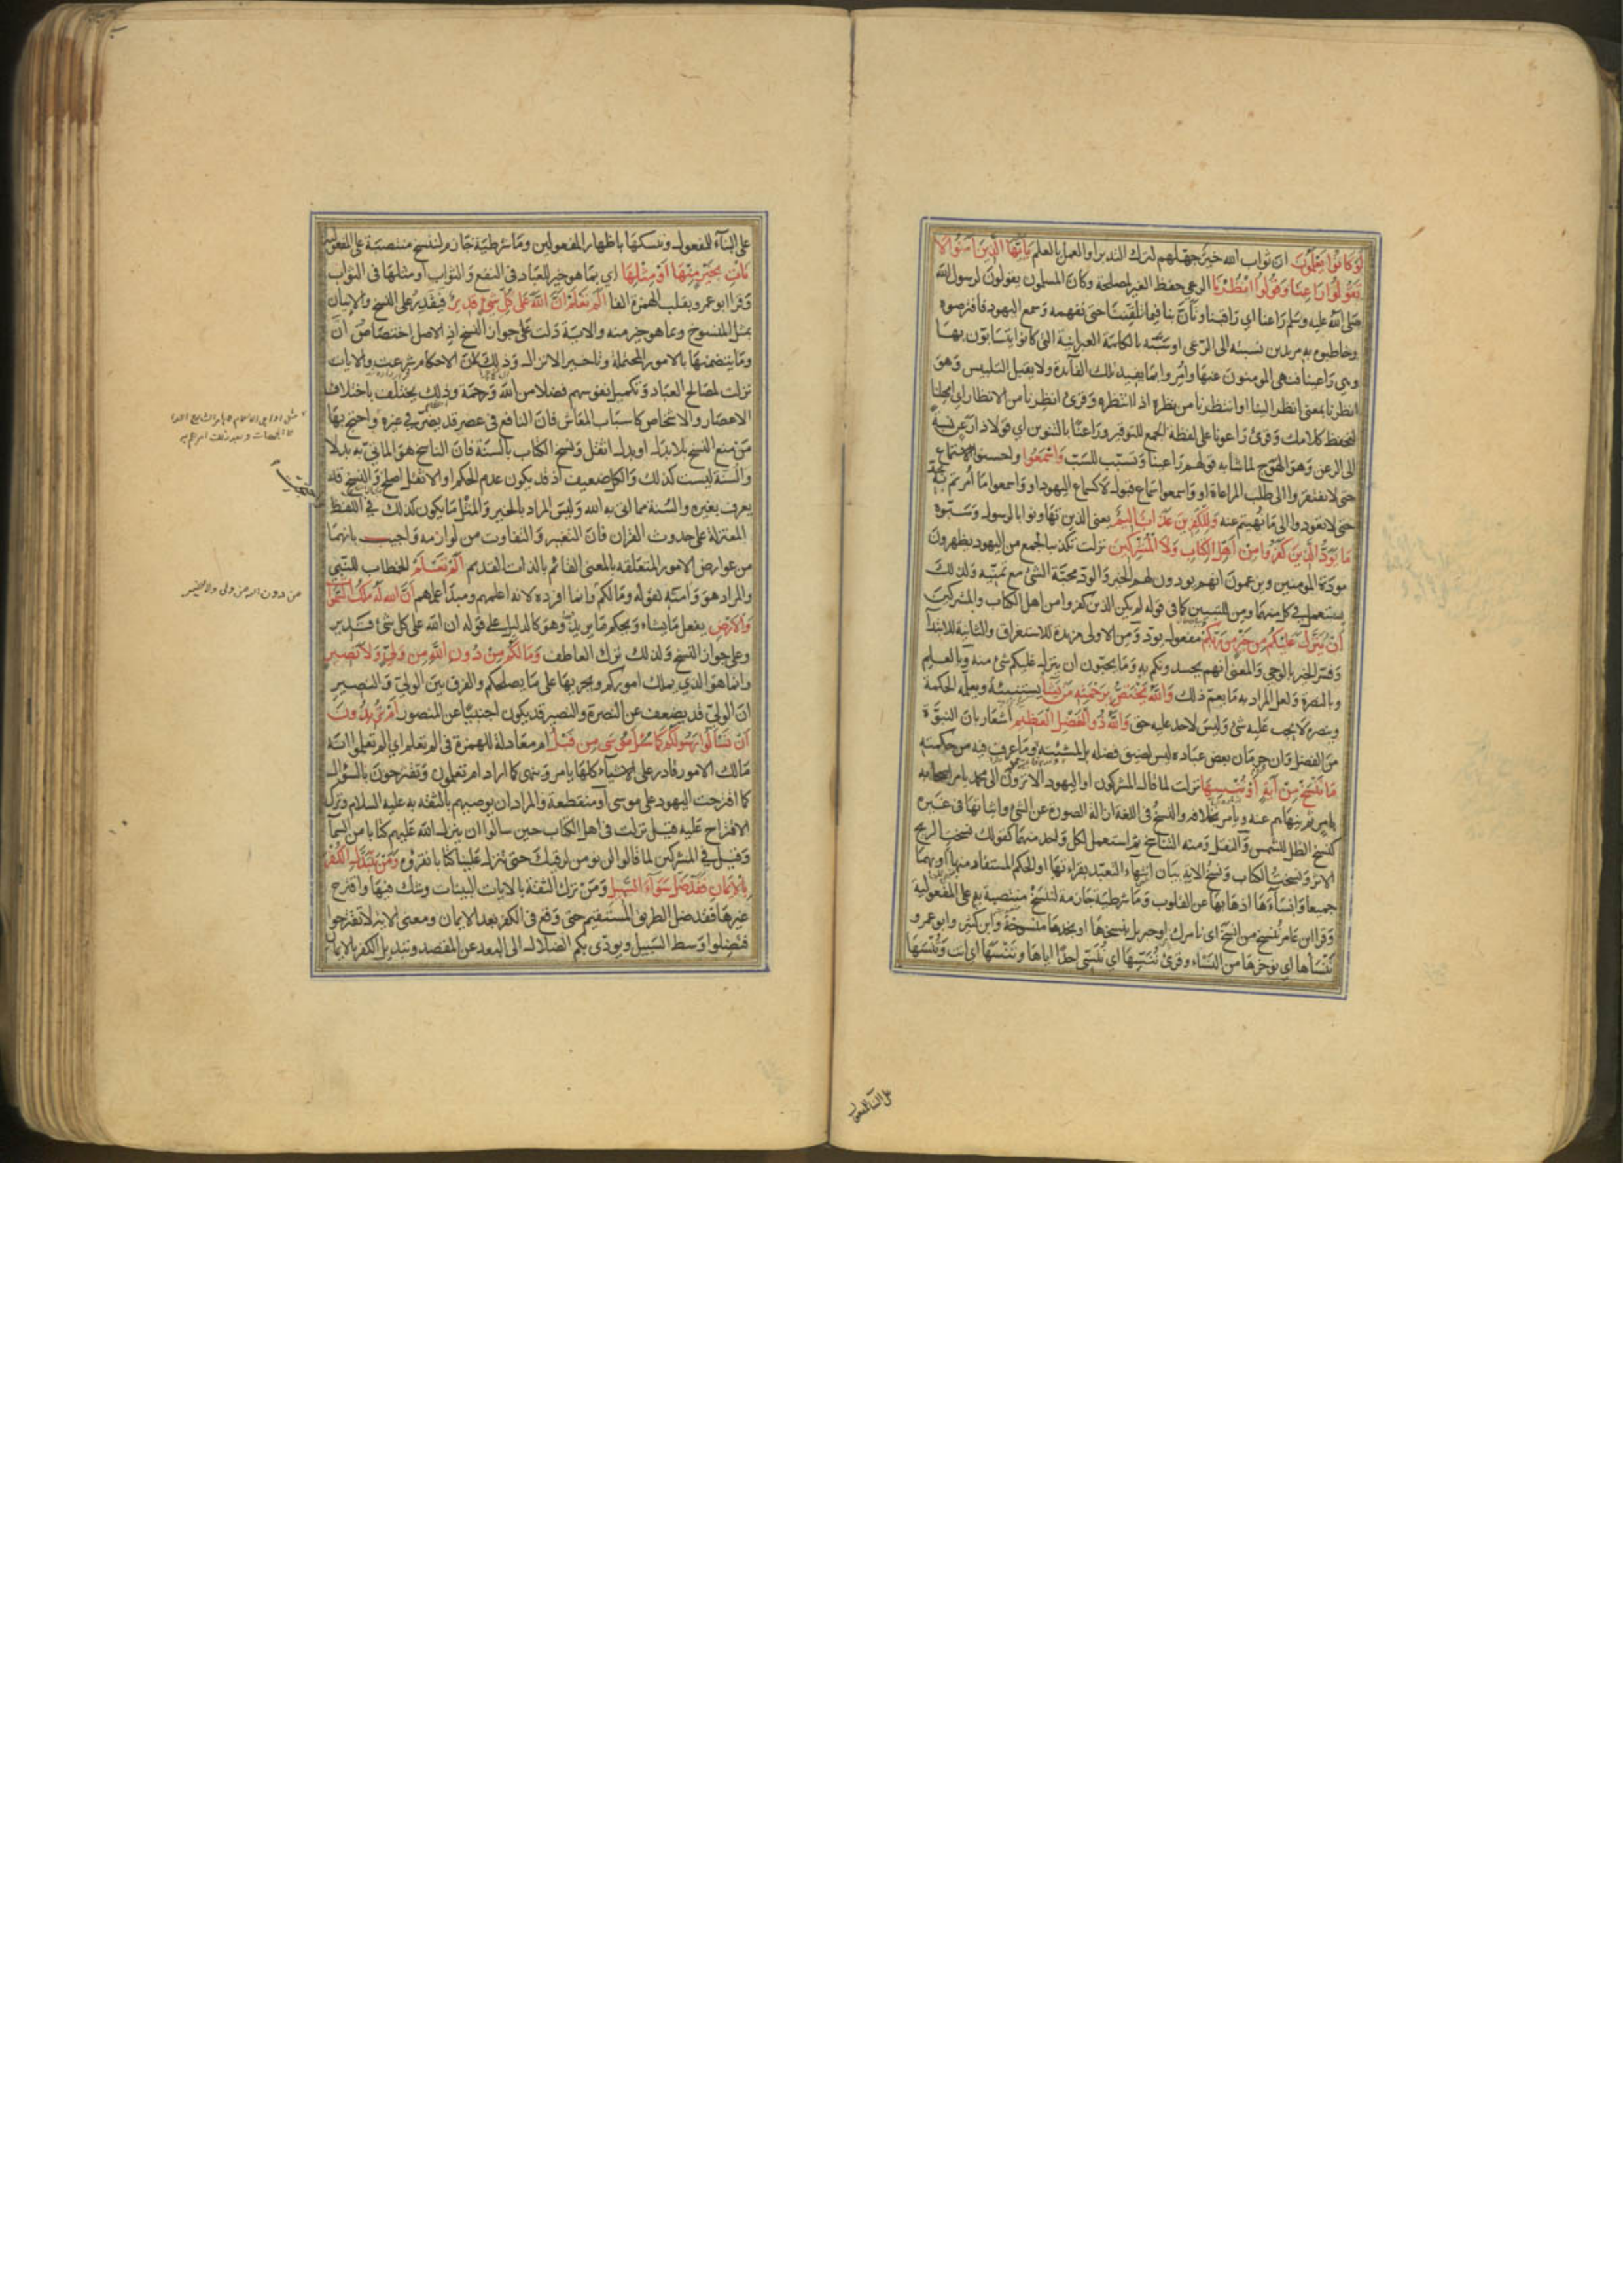 لَوْ كَانُوا يَعْلَمُونَ ان ثواب الله خير جهّلهم لترك التدبر او العمل بالعلم يَا أَيُّهَا الَّذِينَ آمَنُوا لَا
تَقُولُوا رَاعِنَا وَقُولُوا انْظُرْنَا الرعي حفظ الغير لمصلحة وكان المسلمون يقولون لرسول الله
صلى الله عليه وسلم راعنا اي راقبنا وتأنّ بنا فيما تلقننا حتى نفهمه وسمع اليهود فافترصوه
وخاطبوه به مريدين نسبته الى الرعي او سبّه بالكلمة العبرانية التي كانوا يتسابّون بها
وهي راعينا فنهي المومنون عنها وأمروا بما يفيد تلك الفائدة ولا يقبل التلبيس وهو
انظرنا بمعنى انظر الينا او انتظرنا من نظره اذا انتظره وقرئ انظرنا من الانظار اي امهلنا
لنحفظ كلامك وقرئ راعونا على لفظة الجمع للتوقير وراعنًا بالتنوين اي قولا ذا رعن نسبة
الى الرعن وهو الهوج لما شابه قولهم راعينا وتسبب للسبّ وَاسْمَعُوا واحسنوا الاستماع
حتى لا تفتقروا الى طلب المراعاة او واسمعوا سماع قبول لا كسماع اليهود او واسمعوا ما أمرتم به بجدّ
حتى لا تعودوا الى ما نهيتم عنه وَلِلْكَافِرِينَ عَذَابٌ أَلِيمٌ يعني الذين تهاونوا بالرسول وسبّوه
مَا يَوَدُّ الَّذِينَ كَفَرُوا مِنْ أَهْلِ الْكِتَابِ وَلَا الْمُشْرِكِينَ نزلت تكذيبا لجمع من اليهود يظهرون
مودة المومنين ويزعمون انهم يودون لهم الخير والودّ محبة الشئ مع تمنيه ولذلك
يستعمل في كل منهما ومن للتبيين كما في قوله لم يكن الذين كفروا من اهل الكتاب والمشركين
أَنْ يُنَزَّلَ عَلَيْكُمْ مِنْ خَيْرٍ مِنْ رَبِّكُمْ مفعول يودّ ومن الاولى مزيدة للاستغراق والثانية للابتداء
وفسّر الخير بالوحي والمعنى انهم يحسدونكم به وما يحبون ان ينزل عليكم شئ منه وبالعلم
وبالنصرة ولعل المراد به ما يعم ذلك وَاللَّهُ يَخْتَصُّ بِرَحْمَتِهِ مَنْ يَشَاءُ يستنبئه ويعلّمه الحكمة
وينصره لا يجب عليه شئ وليس لاحد عليه حق وَاللَّهُ ذُو الْفَضْلِ الْعَظِيمِ اشعار بان النبوّة
من الفضل وان حرمان بعض عباده ليس لضيق فضله بل لمشيئته وما عرف فيه من حكمته
مَا نَنْسَخْ مِنْ آيَةٍ أَوْ نُنْسِهَا نزلت لما قال المشركون او اليهود الا ترون الى محمد يامر اصحابه
بامر ثم ينهاهم عنه ويأمر بخلافه والنسخ في اللغة ازالة الصورة عن الشئ واثباتها في غيره
كنسخ الظل للشمس والنقل ومنه التناسخ ثم استعمل لكل واحد منهما كقولك نسخت الريح
الاثر ونسختُ الكتاب ونسخُ الاية بيان انتهاء التعبّد بقراءتها او الحكم المستفاد منها او بهما
جميعا وانساءها اذهابها عن القلوب وما شرطية جازمة لننسخ منتصبة به على المفعولية
وقرا ابن عامر نُنسخ من انسخ اي نامرك او جبريل بنسخها او نجدها منسوخة وابن كثير وابو عمرو
نَنْسَأها اي نوخّرها من النساء وقرئ نُنَسِّها اي نُنَسِّي احدًا اياها وتَنْسَها اي انت وتُنْسَها
على البناء للمفعول
على البناء للمفعول وننسكها باظهار المفعولين وما شرطية جازم لننسخ منتصبة على المفعولية
نَأْتِ بِخَيْرٍ مِنْهَا أَوْ مِثْلِهَا اي بما هو خير للعباد في النفع والثواب او مثلها في الثواب
وقرا ابو عمرو بقلب الهمزة الفا أَلَمْ تَعْلَمْ أَنَّ اللَّهَ عَلَى كُلِّ شَيْءٍ قَدِيرٌ فيقدر على النسخ والاتيان
بمثل المنسوخ وبما هو خير منه والاية دلت على جواز النسخ اذ الاصل اختصاص أنْ
وما يتضمنها بالامور المحتملة وتاخير الانزال وذلك لان الاحكام شرعت والايات
نزلت لمصالح العباد وتكميل نفوسهم فضلا من الله ورحمة وذلك يختلف باختلاف
الاعصار والاشخاص كاسباب المعاش فان النافع في عصر قد يضر في غيره واحتج بها
من منع النسخ بلا بدل او ببدل اثقل ونسخ الكتاب بالسنة فان الناسخ هو المأتي به بدلا
والسنة ليست كذلك والكل ضعيف اذ قد يكون عدم الحكم او الاثقل اصلح والنسخ قد
يعرف بغيره والسنة مما اتى به الله وليس المراد بالخير والمثل ما يكون كذلك في اللفظ
المعتزلة على حدوث القران فان التغير والتفاوت من لوازمه واجيب بانهما
من عوارض الامور المتعلقة بالمعنى القائم بالذات القديم أَلَمْ تَعْلَمْ الخطاب للنبي
والمراد هو وامته لقوله وما لكم وانما افرده لانه اعلمهم ومبدأ علمهم أَنَّ اللَّهَ لَهُ مُلْكُ السَّمَوَاتِ
وَالْأَرْضِ يفعل ما يشاء ويحكم ما يريد وهو كالدليل على قوله ان الله على كل شئ قدير
وعلى جواز النسخ ولذلك ترك العاطف وَمَا لَكُمْ مِنْ دُونِ اللَّهِ مِنْ وَلِيٍّ وَلَا نَصِيرٍ
وانما هو الذي يملك اموركم ويجريها على ما يصلحكم والفرق بين الولي والنصير
ان الولي قد يضعف عن النصرة والنصير قد يكون اجنبيا عن المنصور أَمْ تُرِيدُونَ
أَنْ تَسْأَلُوا رَسُولَكُمْ كَمَا سُئِلَ مُوسَى مِنْ قَبْلُ ام معادلة للهمزة في الم تعلم اي الم تعلموا انه
مالك الامور قادر على الاشياء كلها يامر وينهى كما اراد ام تعلمون وتقترحون بالسؤال
كما اقترحت اليهود على موسى او منقطعة والمراد ان يوصيهم بالثقة به عليه السلام وترك
الاقتراح عليه قيل نزلت في اهل الكتاب حين سالوا ان ينزل الله عليهم كتابا من السماء
وقيل في المشركين لما قالوا لن نومن لرقيك حتى تنزل علينا كتابا نقرؤه وَمَنْ يَتَبَدَّلِ الْكُفْرَ
بِالْإِيمَانِ فَقَدْ ضَلَّ سَوَاءَ السَّبِيلِ ومن ترك الثقة بالايات البينات وشك فيها واقترح
غيرها فقد ضل الطريق المستقيم حتى وقع في الكفر بعد الايمان ومعنى الاية لا تقترحوا
فتضلوا وسط السبيل ويودّي بكم الضلال الى البعد عن المقصد وتبديل الكفر بالايمان
من دون الله من ولي ولا نصير